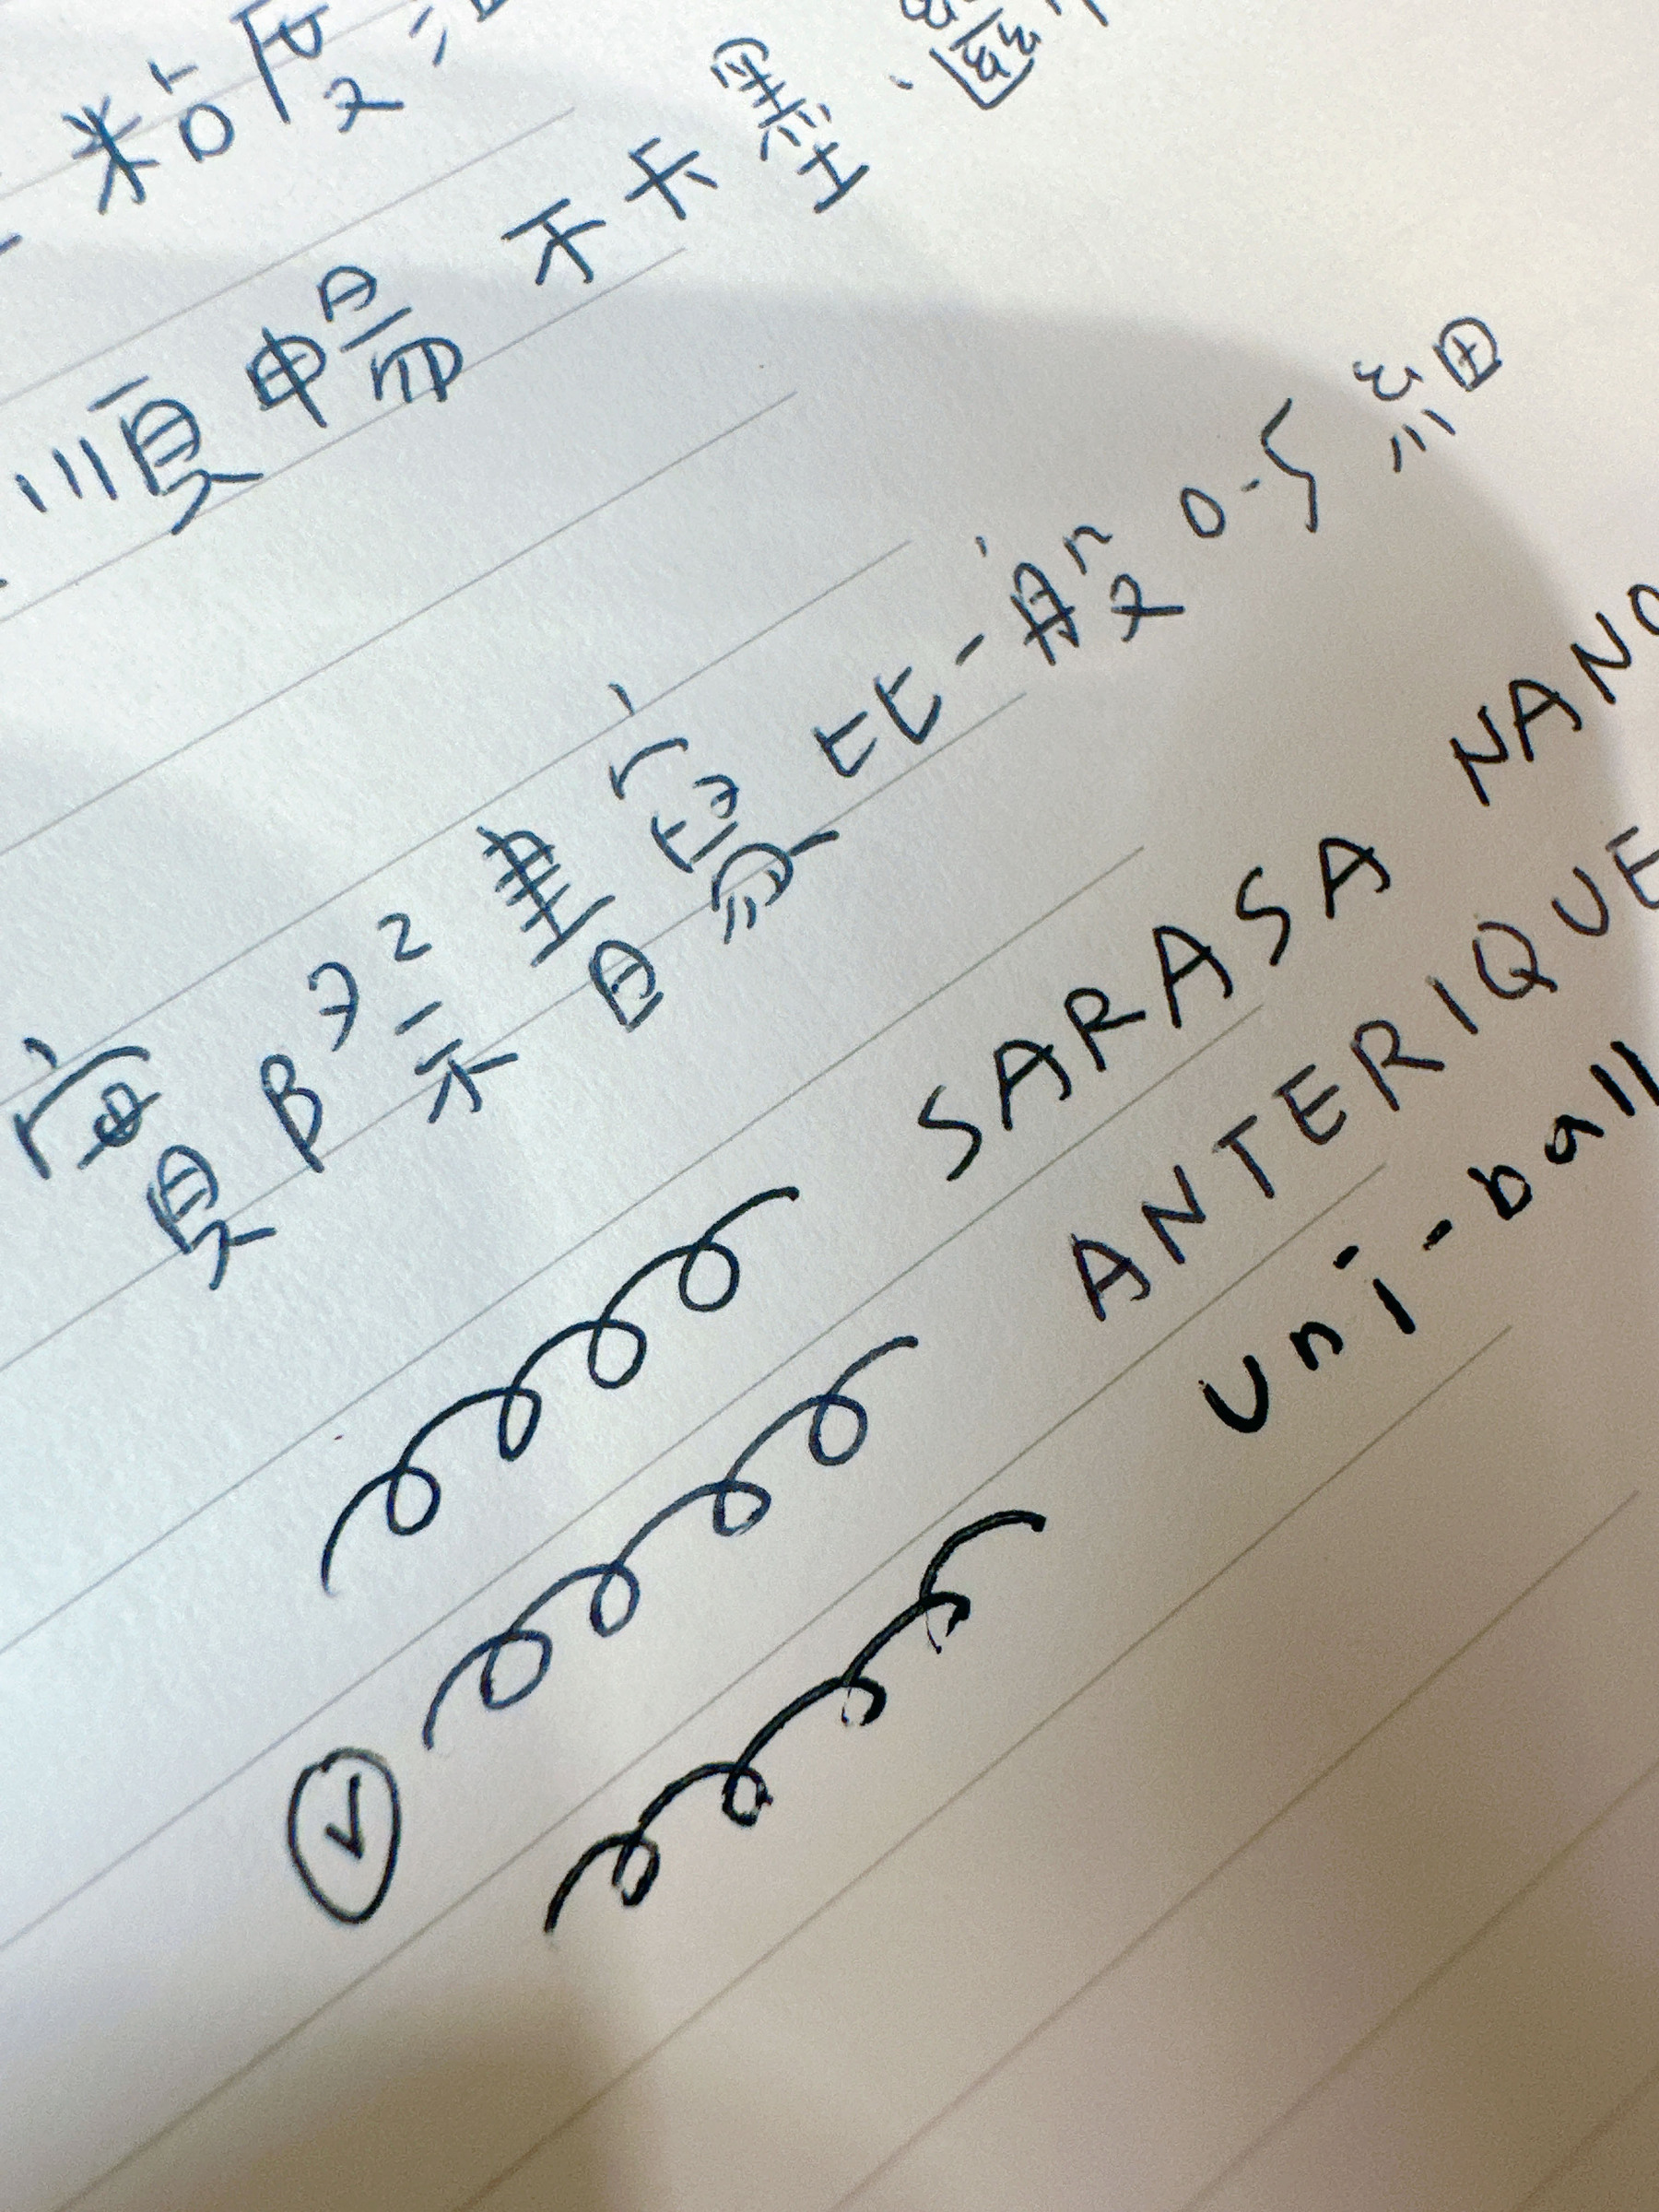 粘度
順暢 不卡墨
實際書寫比一般0.5細
SARASA NANO
ANTERIQUE
uni-ball